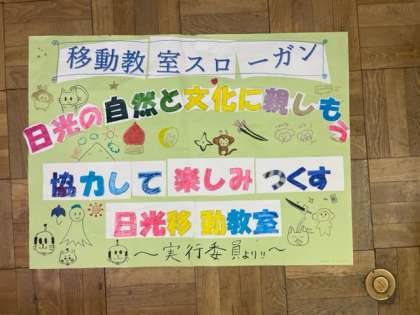 移動教室スローガン
日光の自然と文化に親しもう
協力して楽しみつくす
日光移動教室
〜実行委員より!!〜